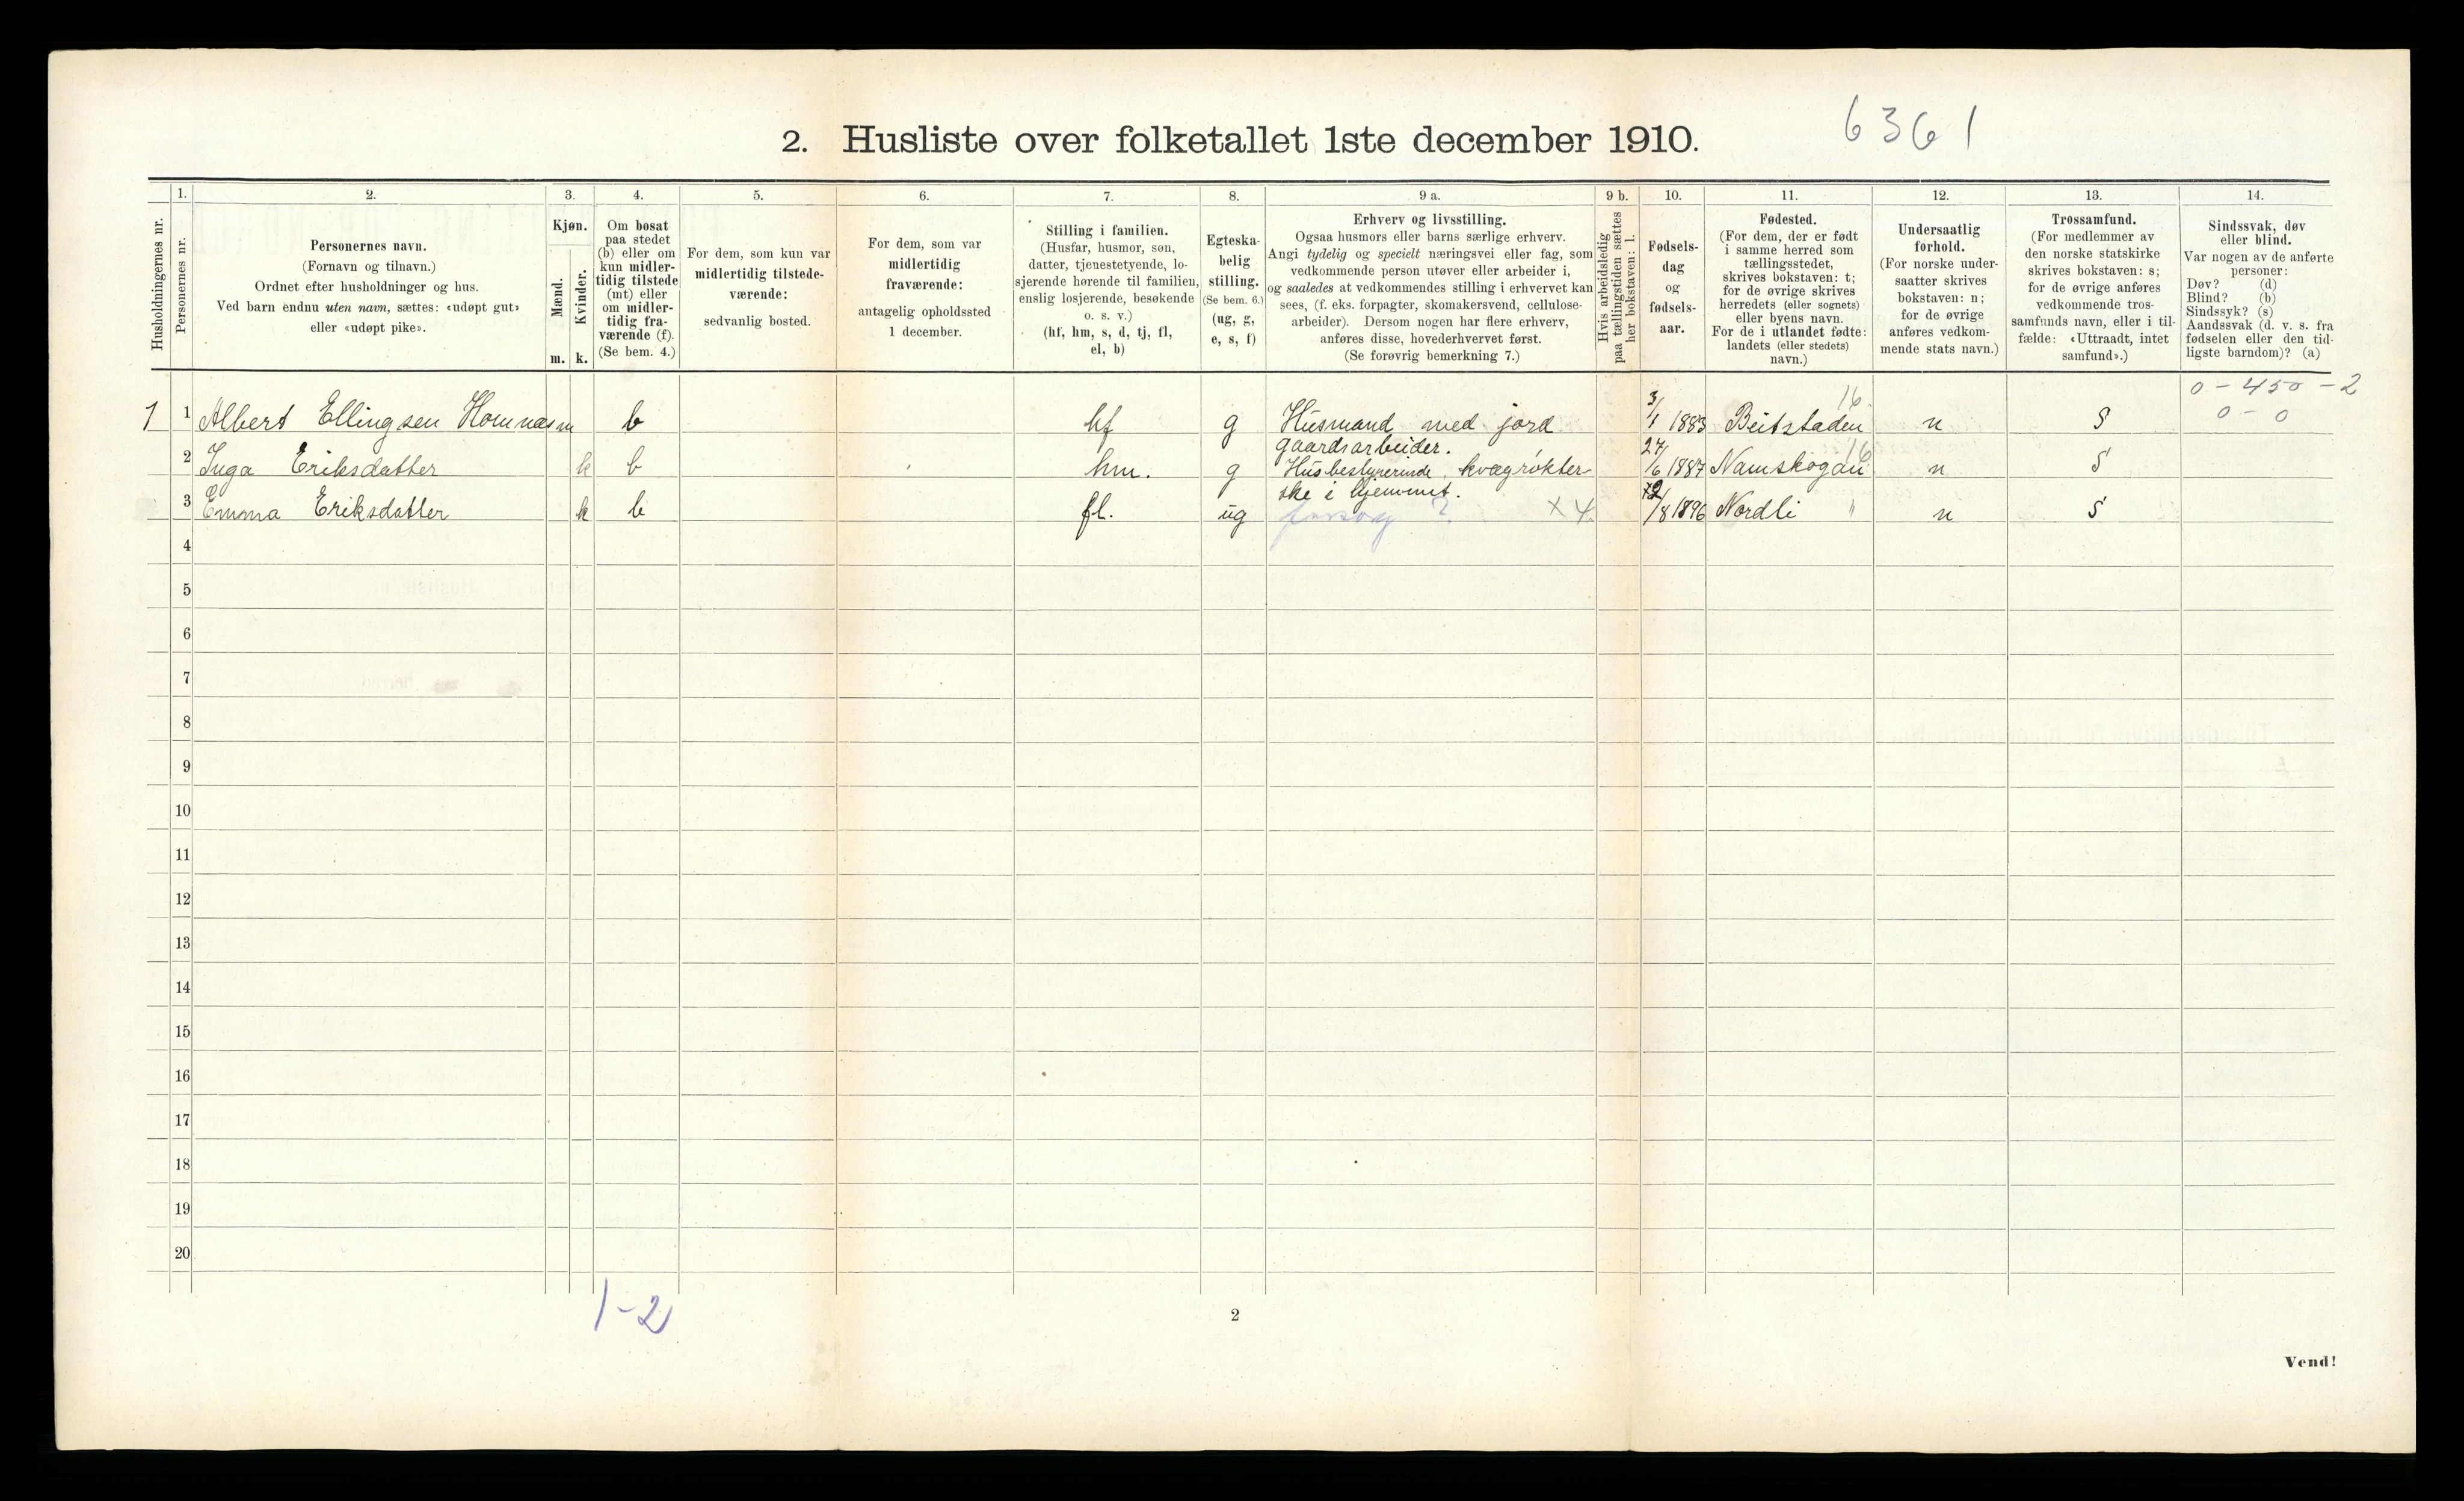 6361
2. Husliste over folketallet 1ste december 1910.
Husholdningernes nr.
1.
Personernes nr.
2.
Personernes navn.
(Fornavn og tilnavn.)
Ordnet efter husholdninger og hus.
Ved barn endnu uten navn, sættes: «udøpt gut»
eller «udøpt pike».
3.
Kjøn.
Mænd.
Kvinder.
m. k.
4.
Om bosat
paa stedet
(b) eller om
kun midler-
tidig tilstede
(mt) eller
om midler-
tidig fra-
værende (f).
(Se bem. 4.)
5.
For dem, som kun var
midlertidig tilstede-
værende:
sedvanlig bosted.
6.
For dem, som var
midlertidig
fraværende:
antagelig opholdssted
1 december.
7.
Stilling i familien.
(Husfar, husmor, søn,
datter, tjenestetyende, lo-
sjerende hørende til familien,
enslig losjerende, besøkende
o. s. v.)
(hf, hm, s, d, tj, fl,
el, b)
8.
Egteska-
belig
stilling.
(Se bem. 6.)
(ug, g,
e, s, f)
9 a.
Erhverv og livsstilling.
Ogsaa husmors eller barns særlige erhverv.
Angi tydelig og specielt næringsvei eller fag, som
vedkommende person utøver eller arbeider i,
og saaledes at vedkommendes stilling i erhvervet kan
sees, (f. eks. forpagter, skomakersvend, cellulose-
arbeider). Dersom nogen har flere erhverv,
anføres disse, hovederhvervet først.
(Se forøvrig bemerkning 7.)
9 b.
Hvis arbeidsledig
paa tællingstiden sættes
her bokstaven: l.
10.
Fødsels-
dag
og
fødsels-
aar.
11.
Fødested.
(For dem, der er født
i samme herred som
tællingsstedet,
skrives bokstaven: t;
for de øvrige skrives
herredets (eller sognets)
eller byens navn.
For de i utlandet fødte:
landets (eller stedets)
navn.)
12.
Undersaatlig
forhold.
(For norske under-
saatter skrives
bokstaven: n;
for de øvrige
anføres vedkom-
mende stats navn.)
13.
Trossamfund.
(For medlemmer av
den norske statskirke
skrives bokstaven: s;
for de øvrige anføres
vedkommende tros-
samfunds navn, eller i til-
fælde: «Uttraadt, intet
samfund».)
14.
Sindssvak, døv
eller blind.
Var nogen av de anførte
personer:
Døv? (d)
Blind? (b)
Sindssyk? (s)
Aandssvak (d. v. s. fra
fødselen eller den tid-
ligste barndom)? (a)
0 - 450 - 2
0 - 0
1 1 Albert Ellingsen Homnæs m b hf g Husmand med jord 3/1 1883 Beitstaden 16 n S
gaardsarbeider.
2 Inga Eriksdatter k b hm. g Husbestyrerinde, kvægrøkter- 27/6 1887 Namskogan 16 n S
ske i hjemmet.
3 Emma Eriksdatter k b fl. ug forsørg ? x 4. /8 1896 Nordli " n S
4
5
6
7
8
9
10
11
12
13
14
15
16
17
18
19
20
1-2
2
Vend!